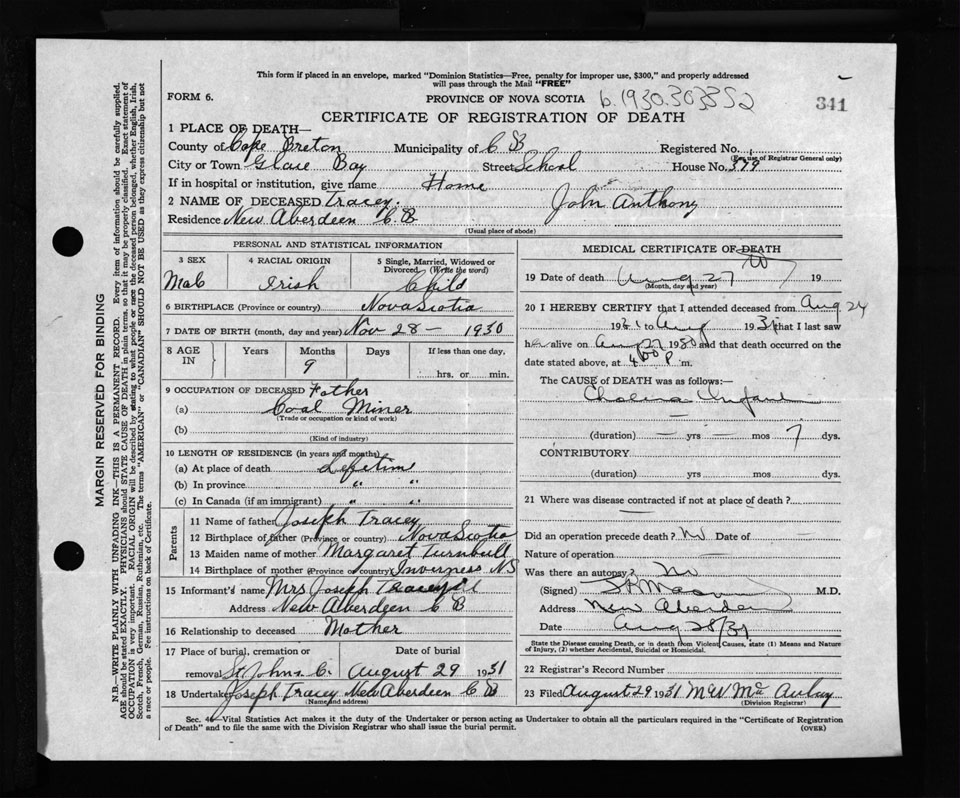 This form if placed in an envelope, marked "Dominion Statistics—Free, penalty for improper use, $300," and properly addressed
will pass through the Mail "FREE"
FORM 6.
PROVINCE OF NOVA SCOTIA b.1930.303352
341
CERTIFICATE OF REGISTRATION OF DEATH
1 PLACE OF DEATH—
County of Cape Breton Municipality of C B Registered No.
(For use of Registrar General only)
City or Town Glace Bay Street School House No. 399
If in hospital or institution, give name Home
2 NAME OF DECEASED Tracey. John Anthony
Residence New Aberdeen C B
(Usual place of abode)
PERSONAL AND STATISTICAL INFORMATION
3 SEX 4 RACIAL ORIGIN 5 Single, Married, Widowed or
Divorced. (Write the word)
Male Irish Child
6 BIRTHPLACE (Province or country) Nova Scotia
7 DATE OF BIRTH (month, day and year) Nov 28 — 1930
8 AGE IN Years Months Days If less than one day,
9 hrs. or min.
9 OCCUPATION OF DECEASED Father
(a) Coal Miner
(Trade or occupation or kind of work)
(b)
(Kind of industry)
10 LENGTH OF RESIDENCE (in years and months)
(a) At place of death Lifetime
(b) In province " "
(c) In Canada (if an immigrant) " "
Parents
11 Name of father Joseph Tracey
12 Birthplace of father (Province or country) Nova Scotia
13 Maiden name of mother Margaret Turnbull
14 Birthplace of mother (Province or country) Inverness N S
15 Informant's name Mrs Joseph Tracey
Address New Aberdeen C B
16 Relationship to deceased Mother
17 Place of burial, cremation or Date of burial
removal St Johns C. August 29 1931
18 Undertaker Joseph Tracey New Aberdeen C B
(Name and address)
MEDICAL CERTIFICATE OF DEATH
19 Date of death Aug 27 19
(Month, day and year)
20 I HEREBY CERTIFY that I attended deceased from Aug 24
1931 to Aug 1931 that I last saw
h alive on Aug 27 1930 and that death occurred on the
date stated above, at 4 00 P m.
The CAUSE of DEATH was as follows:—
Cholera Infant
(duration) — yrs — mos 7 dys.
CONTRIBUTORY
(duration) yrs mos dys.
21 Where was disease contracted if not at place of death?
Did an operation precede death? No Date of —
Nature of operation —
Was there an autopsy? No
(Signed) M.D.
Address New Aberdeen
Date Aug 28/31
State the Disease causing Death, or in death from Violent Causes, state (1) Means and Nature
of Injury, (2) whether Accidental, Suicidal or Homicidal.
22 Registrar's Record Number
23 Filed August 29 1931 M W Mc
(Division Registrar)
Sec. 4—Vital Statistics Act makes it the duty of the Undertaker or person acting as Undertaker to obtain all the particulars required in the "Certificate of Registration
of Death" and to file the same with the Division Registrar who shall issue the burial permit. (OVER)
MARGIN RESERVED FOR BINDING
N.B.—WRITE PLAINLY WITH UNFADING INK—THIS IS A PERMANENT RECORD. Every item of information should be carefully supplied.
AGE should be stated EXACTLY. PHYSICIANS should STATE CAUSE OF DEATH in plain terms, so that it may be properly classified. Exact statement of
OCCUPATION is very important. RACIAL ORIGIN will be described by stating to what people or race the deceased person belonged, whether English, Irish,
Scotch, French, German, Russian, Ruthenian, etc. The terms "AMERICAN" or "CANADIAN" SHOULD NOT BE USED as they express citizenship but not
a race or people. Fee instructions on back of Certificate.